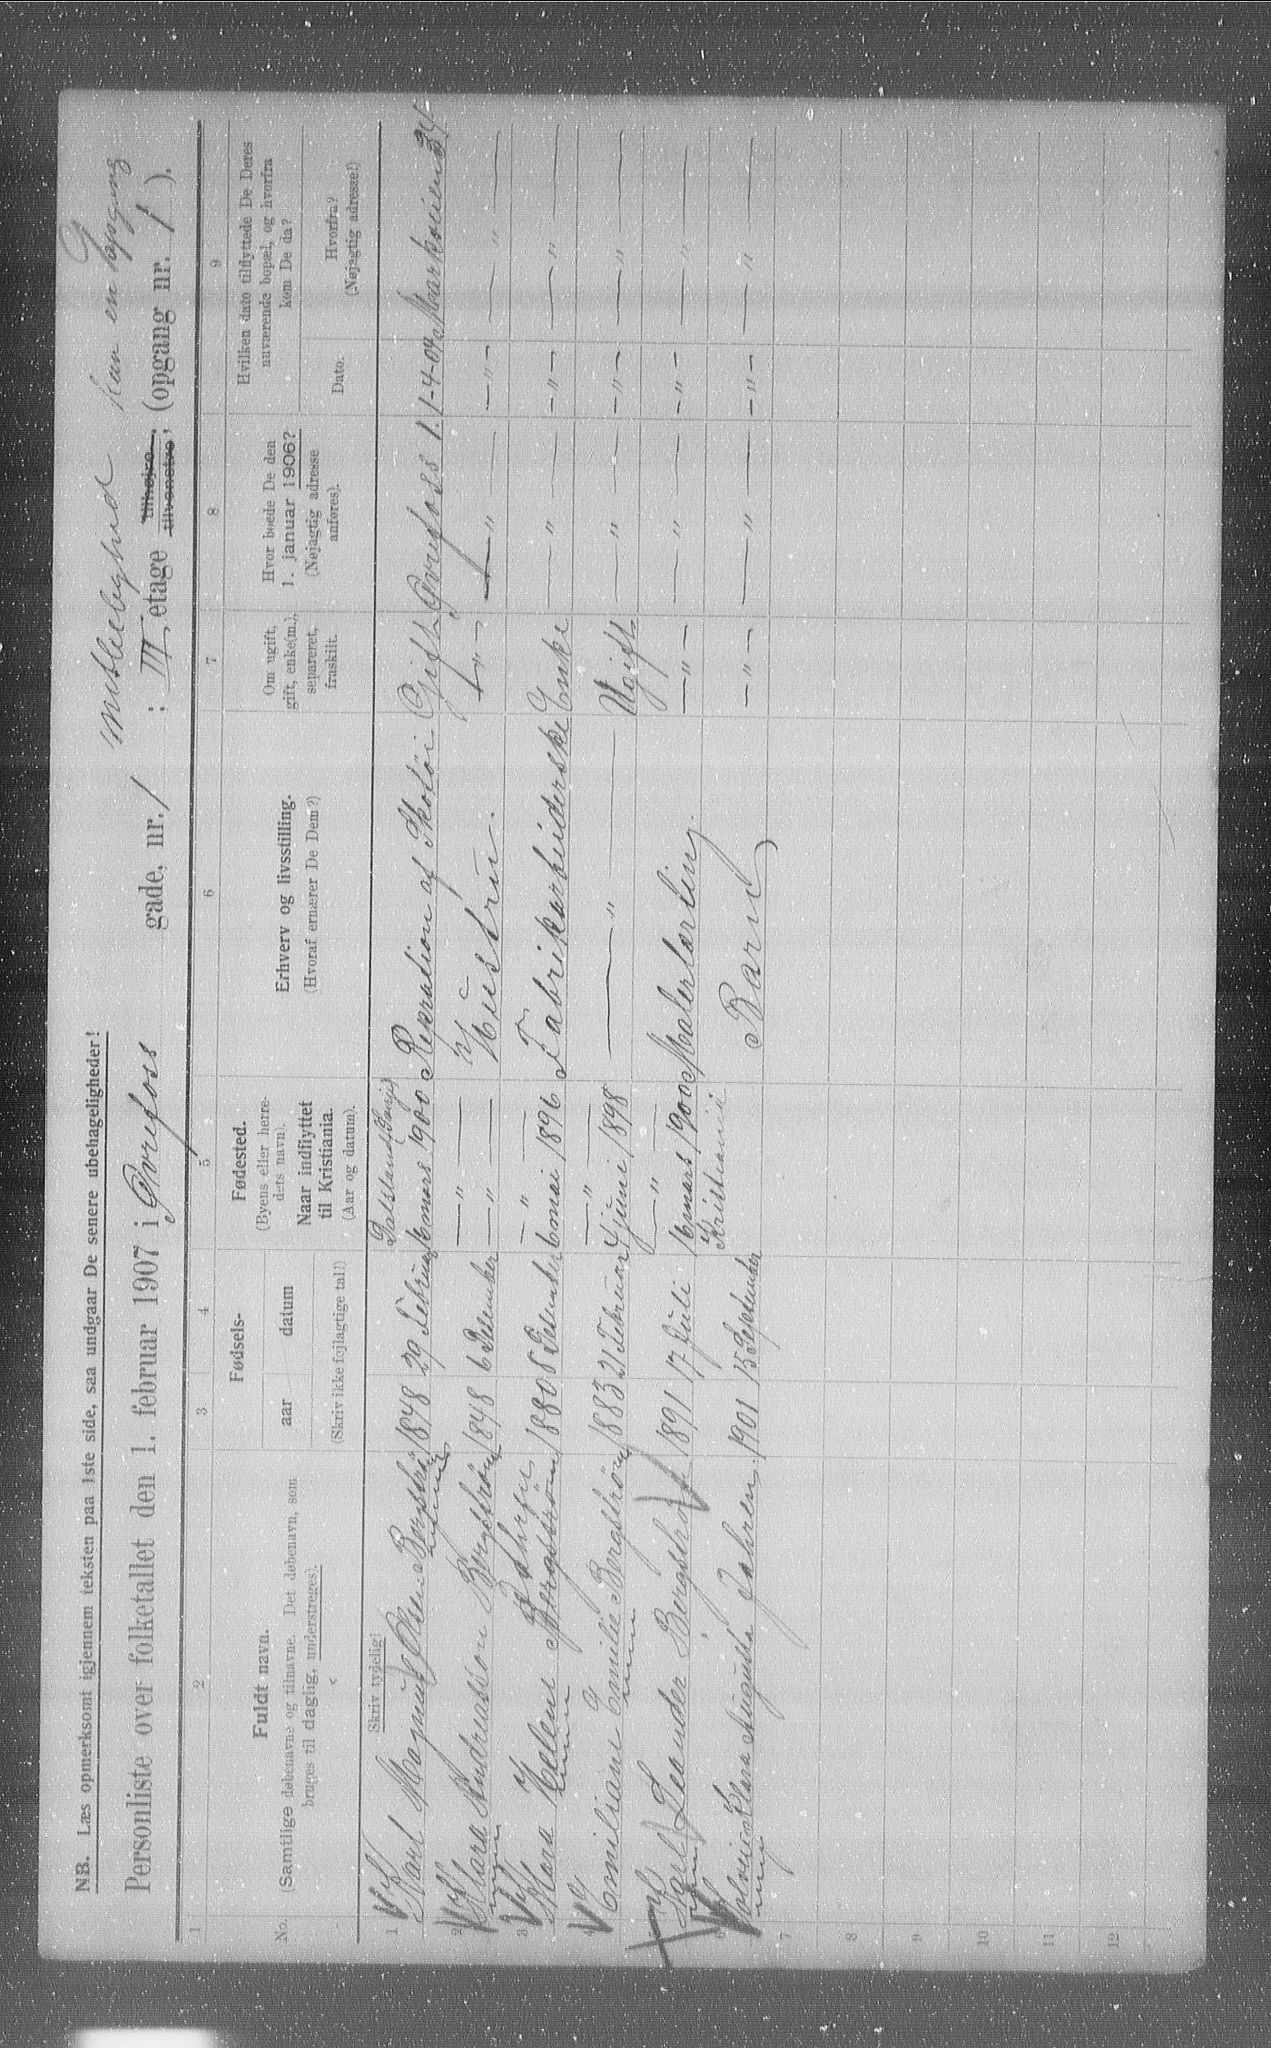 NB. Læs opmerksomt igjennem teksten paa 1ste side, saa undgaar De senere ubehageligheder!
midtleilighed kun en opgang
Personliste over folketallet den 1. februar 1907 i Grefoss gade, nr. 1 ; III etage tilhøjre, tilvenstre, (opgang nr. 1 ).
1 2 3 4 5 6 7 8 9
No.
Fuldt navn.
(Samtlige døbenavne og tilnavne. Det døbenavn, som
bruges til daglig, understreges).
Fødsels-
aar datum
(Skriv ikke fejlagtige tal!)
Fødested.
(Byens eller herre-
dets navn).
Naar indflyttet
til Kristiania.
(Aar og datum).
Erhverv og livsstilling.
(Hvoraf ernærer De Dem?)
Om ugift,
gift, enke(m.),
separeret,
fraskilt.
Hvor boede De den
1. januar 1906?
(Nøjagtig adresse
anføres).
Hvilken dato tilflyttede De Deres
nuværende bopæl, og hvorfra
kom De da?
Dato.
Hvorfra?
(Nøjagtig adresse!)
Skriv tydelig!
1 Karl Magnus Olsen Bergström 1848 29 Februar 16 mars 1900 Repration af Skotöi Gift Grefoss 1. 1-4-04 Markveien 34
2 Klara Andreasson Bergström 1848 6 Desember — " — Hustru. — " — — " — — " — — " —
3 Klara Helene Bergström Jahren 1880 8 Desember — " — 6 mai 1896 Fabrikarbeiderske Enke — " — — " — — " —
4 Emiliane Emilie Bergström 1883 21 Februar — " — 4 juni 1898 — " — Ugift — " — — " — — " —
5 Karl Leander Bergström 1891 17 Juli — " — 16 mars 1900 Malerlærling. — " — — " — — " — — " —
6 Solveig Klara Augusta Jahren. 1901 15 September Kristiania Barn — " — — " — — " — — " —
7
8
9
10
11
12